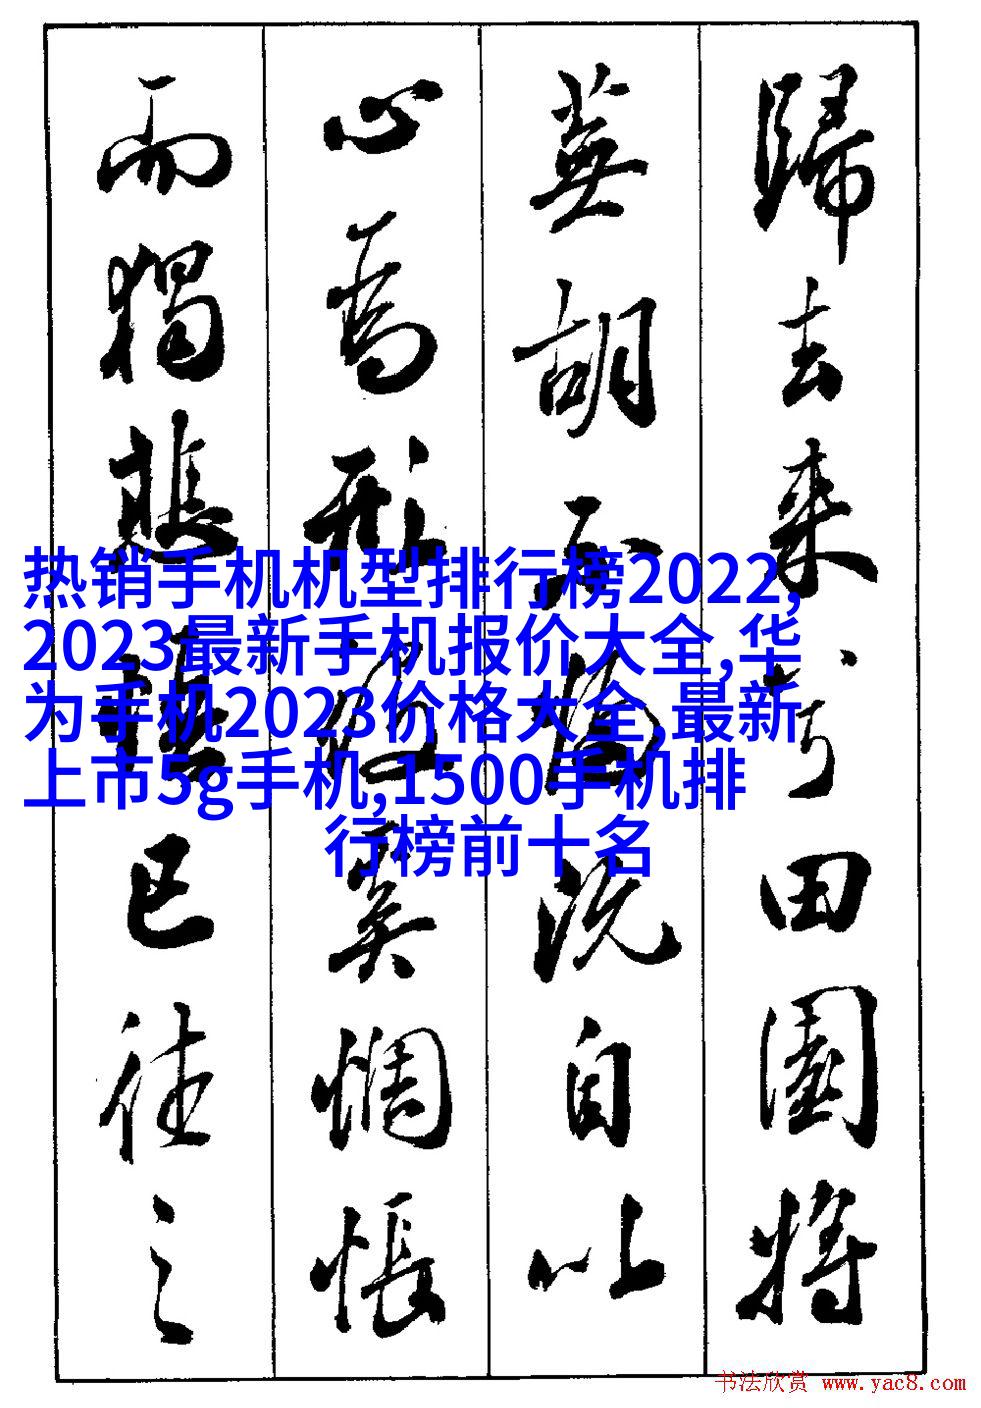 歸去来兮田園将
蕪胡不歸既自以
心為形役奚惆悵
而獨悲悟已往之
热销手机机型排行榜2022,
2023最新手机报价大全,华
为手机2023价格大全,最新
上市5g手机,1500手机排
行榜前十名
书法欣赏 www.yac8.com